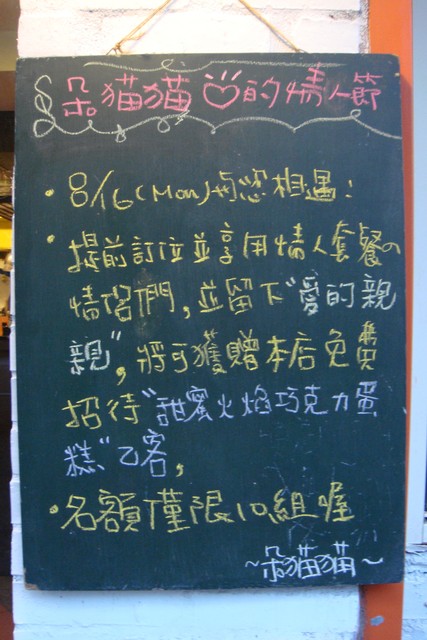 朵貓貓的情人節
·8/16(Mon)與您相遇!
·提前訂位並享用情人套餐の
情侶們,並留下"愛的親
親",將可獲贈本店免費
招待"甜蜜火焰巧克力蛋
糕"乙客,
·名額僅限10組喔
~朵貓貓~